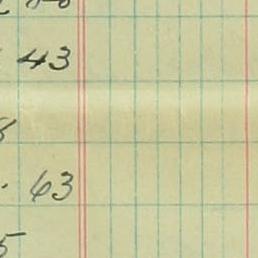 43
8
63
5